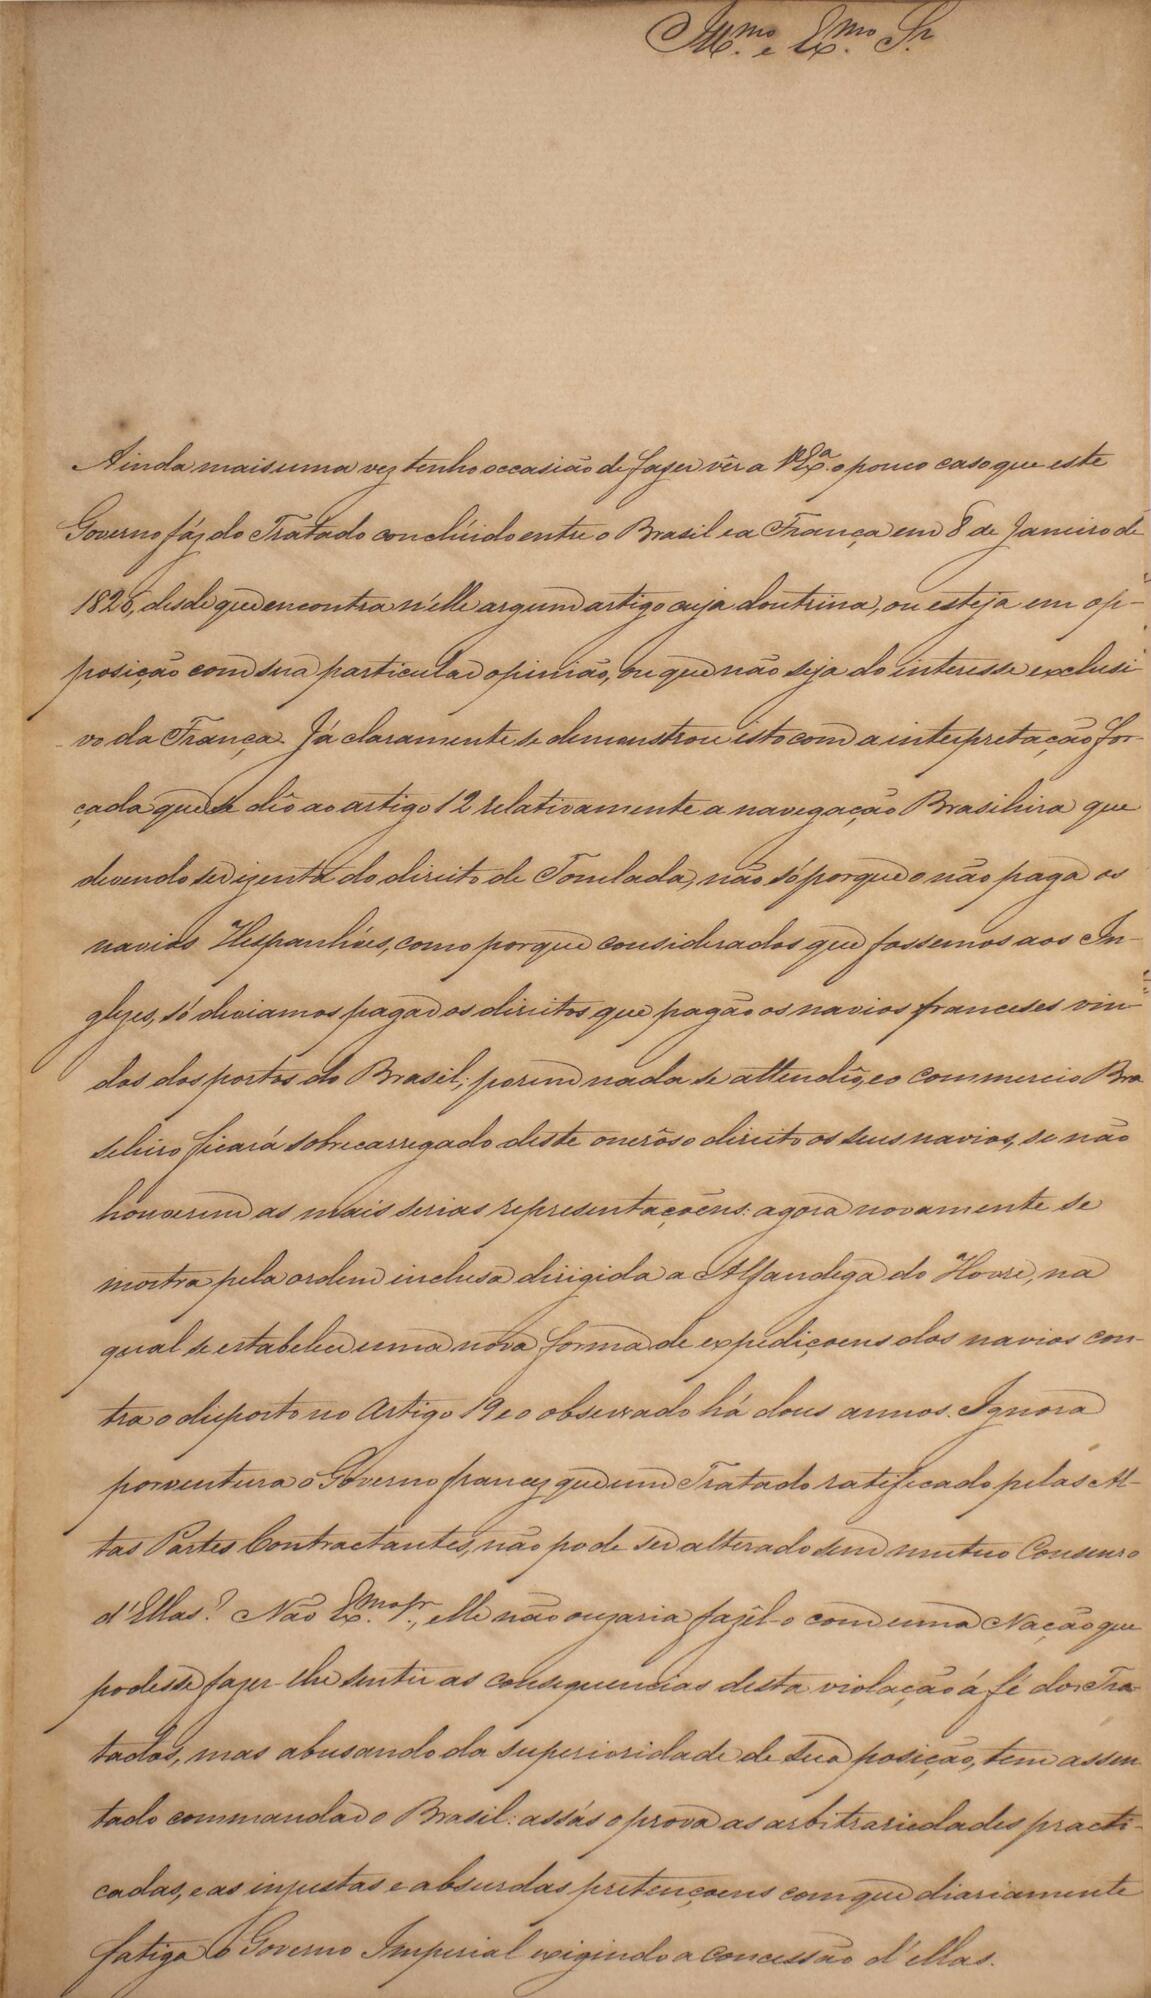 Ill.mo e Ex.mo Sr
Ainda mais uma vez tenho occasião de fazer vêr a V. Ex.a o pouco caso que este
Governo fáz do Tratado conclúido entre o Brasil e a França em 8 de Janeiro de
1826, desde que encontra n'elle argum artigo cuja doutrina, ou esteja em op-
posição com sua particular opinião, ou que não seja do interesse exclusi
vo da França. Já claramente se demonstrou isto com a interpretação for-
çada que se dêo ao artigo 12 relativamente a navegação Brasileira que
devendo ser izenta do direito de Tonelada, não só porque o não paga os
navios Hespanhóes, como porque considerados que fossemos aos In-
glezes, só deviamos pagar os direitos que pagão os navios franceses vin-
dos dos portos do Brasil; porem nada se attendêo, e o commercio Bra
seleiro ficará sobrecarregado deste onerôso direito os seus navios, se não
houverem as mais serias representaçoens: agora novamente se
mostra pela ordem inclusa dirigida a Alfandega do Havre, na
qual se estabelece uma nova forma de expediçoens dos navios con-
tra o disposto no Artigo 19 e o observado há dous annos. Ignora
porventura o Governo francez que um Tratado ratificado pelas Al-
tas Partes Contractantes, não pode ser alterado sem mutuo Consenso
d'Ellas? Não Ex.mo Sr., elle não ouzaria fazêl-o com uma Nação que
podesse fazer-lhe sentir as consequencias desta violação á fé dos Tra-
tados, mas abusando da superioridade de sua posição, tem assen
tado commandar o Brasil: assás o prova as arbitrariedades practi-
cadas, e as injustas e absurdas pretençoens com que diariamente
fatiga o Governo Imperial exigindo a concessão d'ellas.